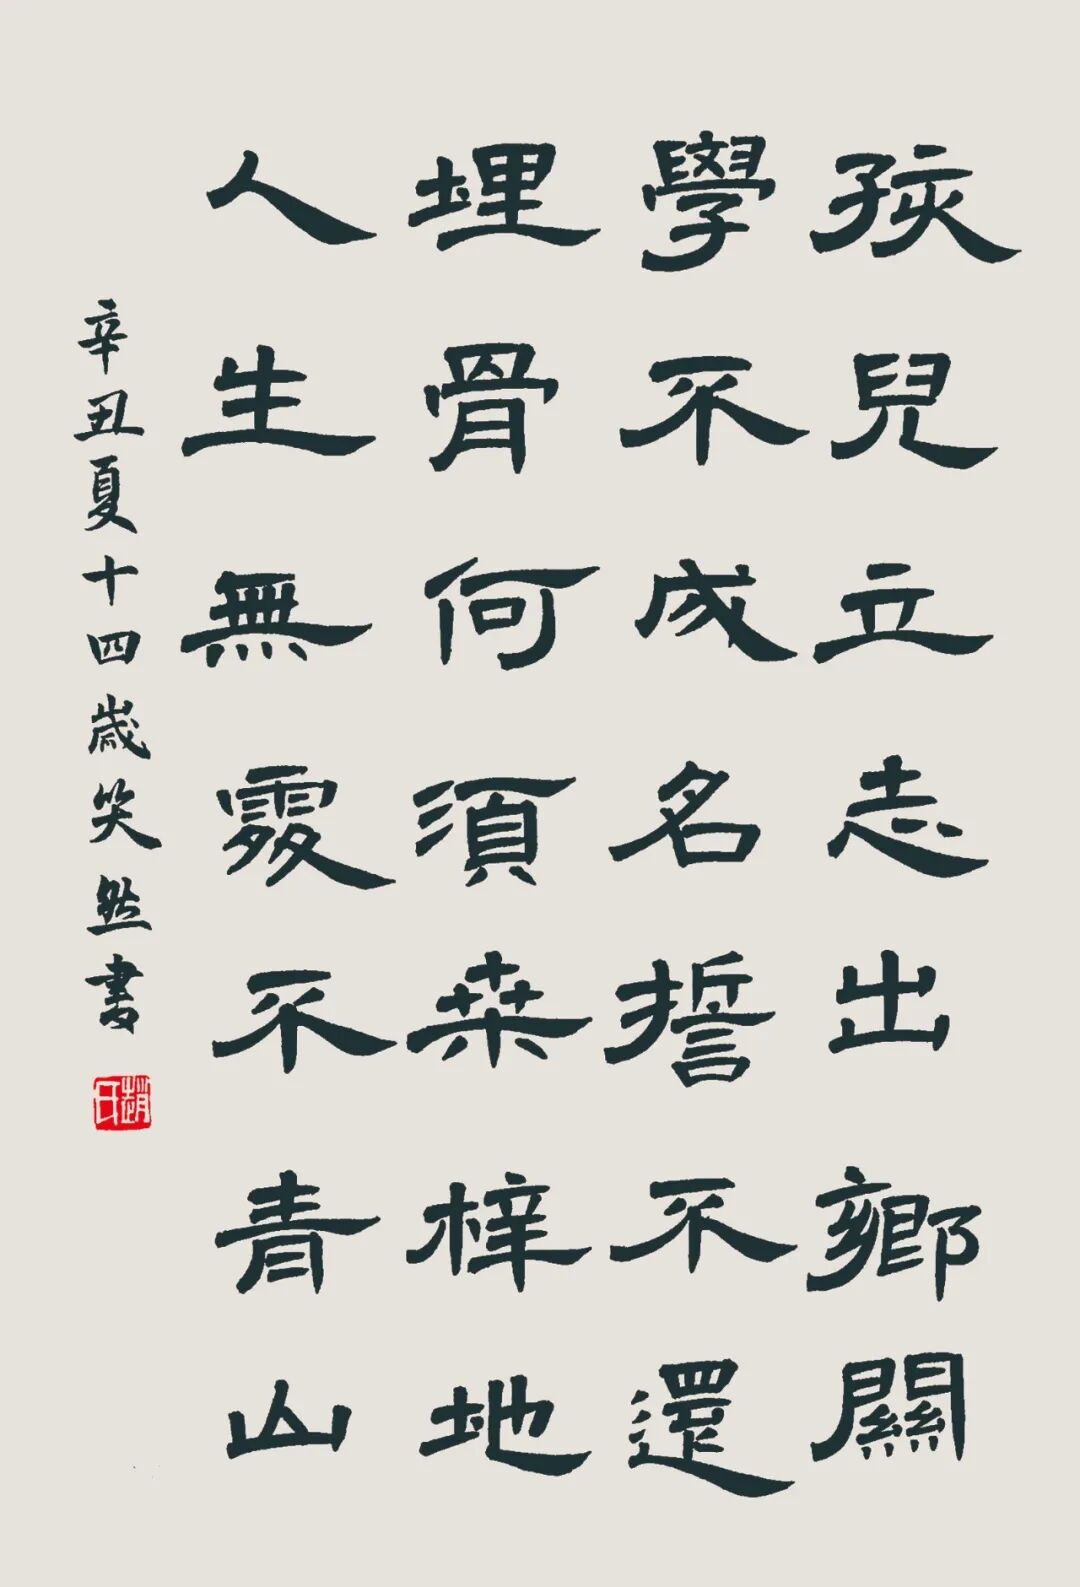 孩兒立志出鄉關
學不成名誓不還
埋骨何須桒梓地
人生無處不青山
辛丑夏十四歲笑然書
趙氏